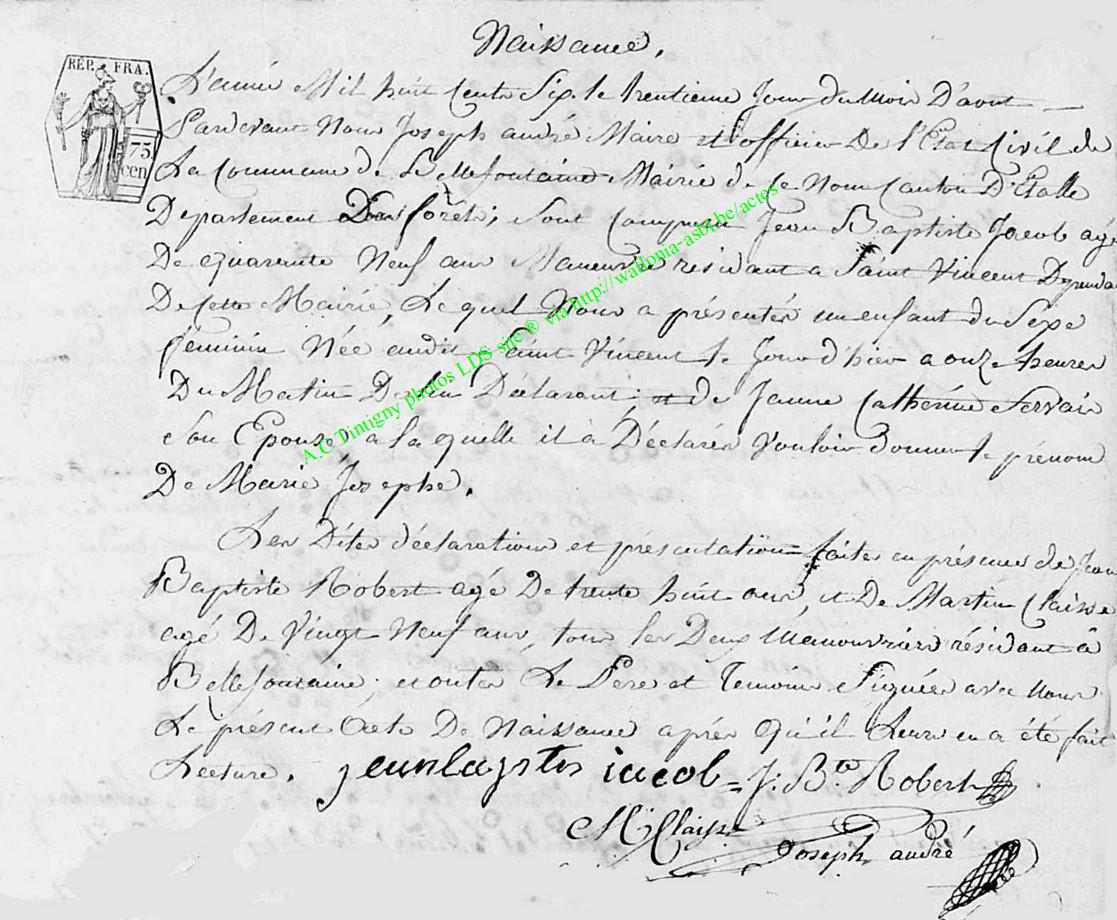 Naissance.
RÉP. FRA.
75
cen
L'année Mil huit Cents Six le trentieme Jour du Mois D'aout
Pardevant Nous Joseph andré Maire et officier De l'Etat Civil de
La Commune de Bellefontaine Mairie de ce Nom Canton D'Etalle
Departement Des forêts; sont comparu Jean Baptiste Jacob agé
De quarente Neuf ans Maneuvre résidant a Saint Vincent Dependa
De cette Mairie, Le quel Nous a présentér un enfant du Sexe
feminin Née audit Saint Vincent le Jour d'hier a onze heures
Du Matin De lui Déclarant et de Jeanne Catherine Servais
Son Epouse, a la quelle il à Déclarér Vouloir Donner le prenom
De Marie Josephe.
Les Dites déclaration et présentation faites en présence de Jean
Baptiste Robert agé De trente huit ans, et De Martin Claisse
agé De Vingt Neuf ans, tous les Deux Manouvriers résidant à
Bellefontaine; et ont Le Pere et Temoins Signées avec Nous
Le présent Acte De Naissance après qu'il Leurs en a été fait
Lecture. jeanbaptis iacob = J: Bte Robert
M: Claisse
Joseph andré
A.C Tintigny photos LDS site ® via http://wallonia-asbl.be/actes